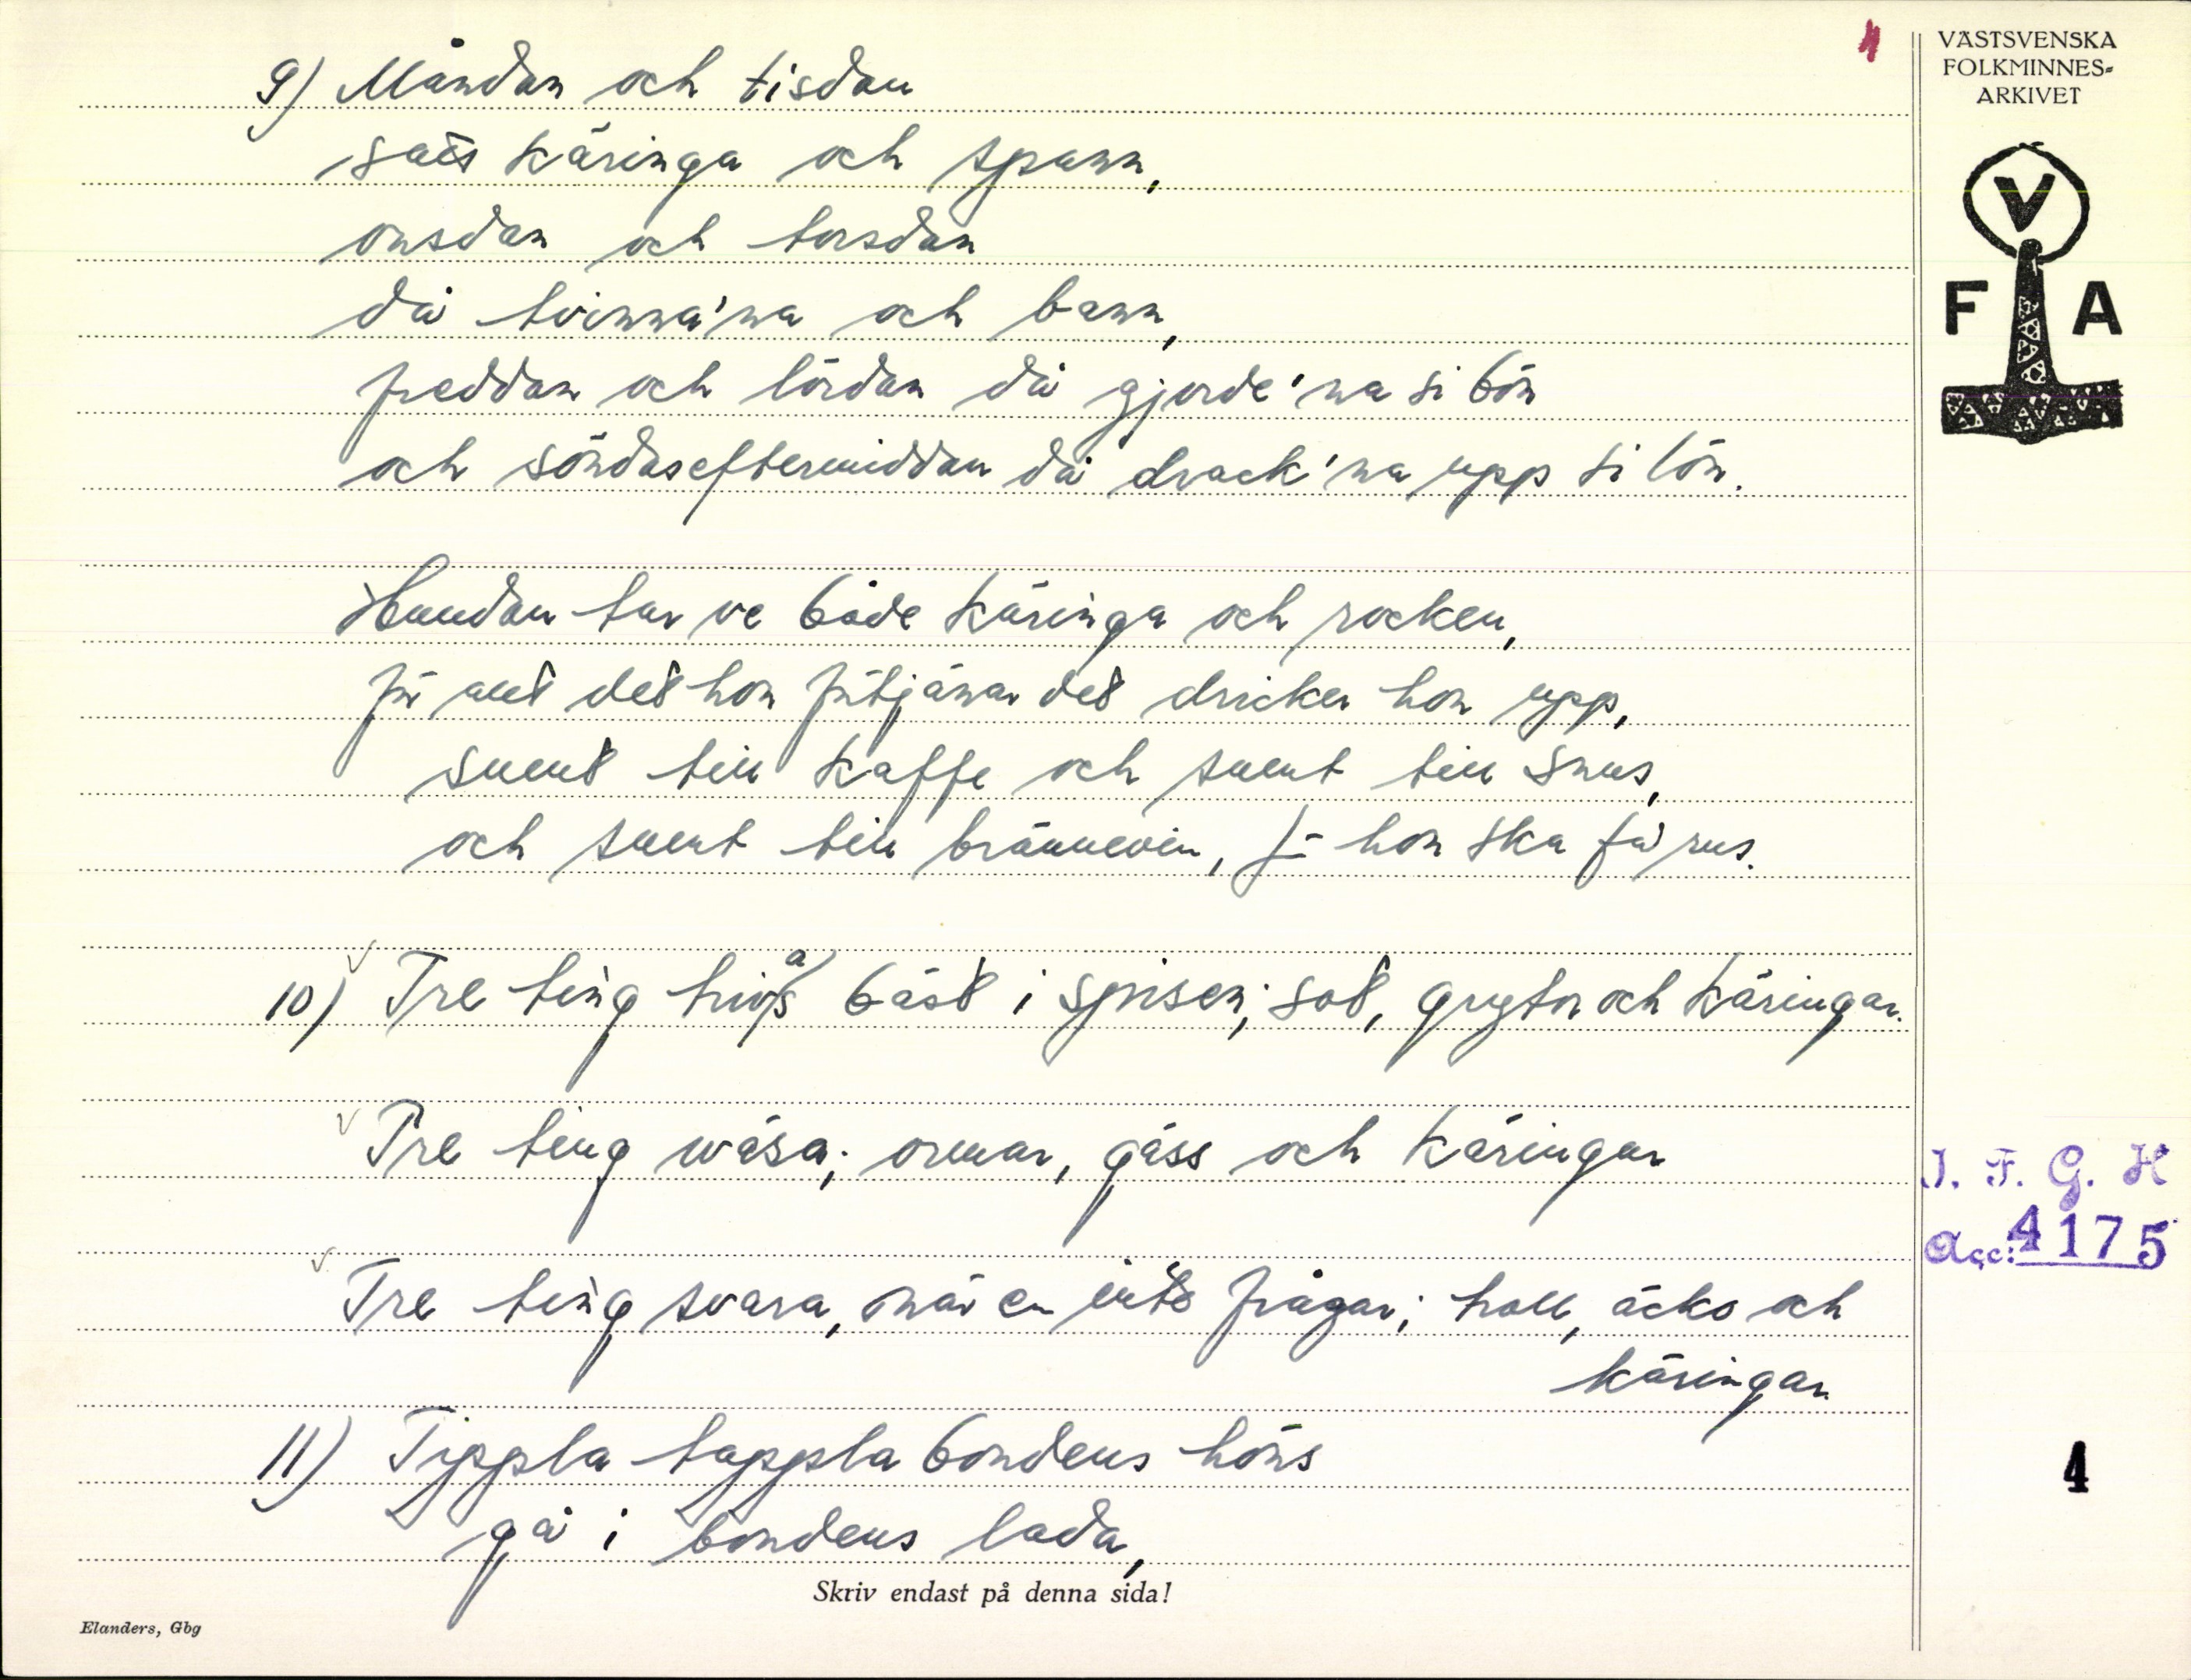 9) Måndan och tisdan
sats käringa och spann,
onsdan och torsdan
då tvinna'na och bann,
freddan och lördan då gjorde'na si bön
och söndaseftermiddan då drack'na upp si lön.
Hundan tar ve både käringa och rocken,
för allt det hon förtjänar det dricker hon upp,
sumt till kaffe och sumt till snus,
och sumt till brännevin, för hon ska få rus.
10) Tre ting trivas bäst i spisen; sot, grytor och käringar.
Tre ting wäsa; ormar, gäss och käringar
Tre ting svara, när en inte frågar; troll, äcko och
käringar.
11) Tippla tappla bondens höns
gå i bondens lada,
Skriv endast på denna sida!
Elanders, Gbg
1
VÄSTSVENSKA
FOLKMINNES-
ARKIVET
V
F A
I. F. G. H
Acc: 4175
4